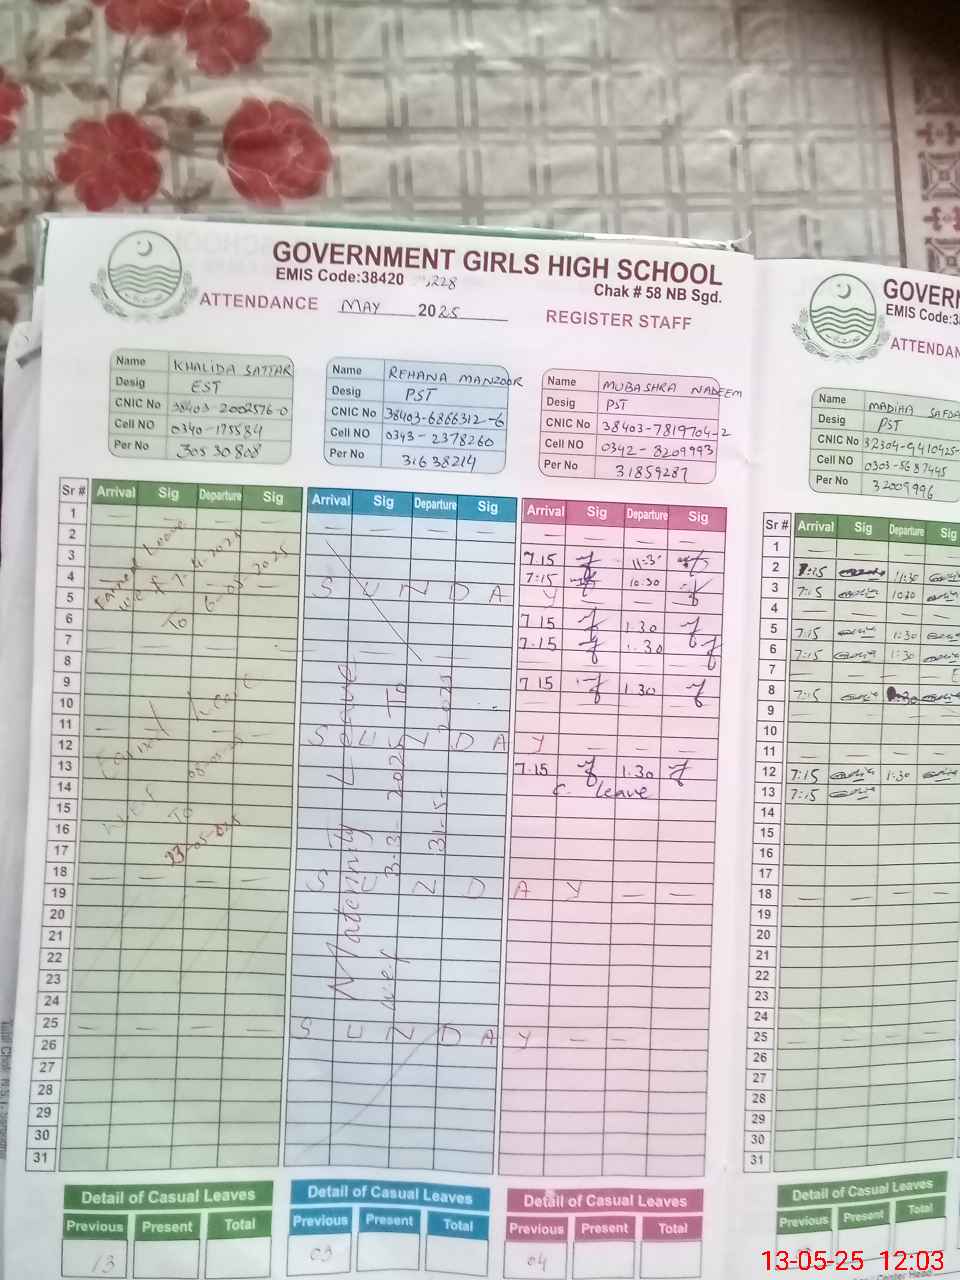 GOVERNMENT GIRLS HIGH SCHOOL
EMIS Code:38420
Chak # 58 NB Sgd.
ATTENDANCE MAY 2025 REGISTER STAFF
Name KHALIDA SATTAR
Desig EST
CNIC No 38403-2002576-0
Cell NO 0340-175584
Per No 30530808
Name REHANA MANZOOR
Desig PST
CNIC No 38403-6866312-6
Cell NO 0343-2378260
Per No 31638214
Name MUBASHRA NADEEM
Desig PST
CNIC No 38403-7819704-2
Cell NO 0342-8209993
Per No 31859287
Sr # Arrival Sig Departure Sig Arrival Sig Departure Sig Arrival Sig Departure Sig
1
2 7.15 11:30
3 7:15 10:30
4 S U N D A Y
5 7.15 1.30
6 7.15 1.30
7
8 7.15 1.30
9
10
11 S U N D A Y
12 7.15 1.30
13 C. leave
14
15
16
17
18 S U N D A Y
19
20
21
22
23
24
25 S U N D A Y
26
27
28
29
30
31
Earned Leave
w.e.f 7-4-2025
To 6-05-2025
Earned Leave
W.E.F 08-05-25
TO
23-05-025
Maternity Leave
w.e.f 3.3.2025 TO
31-5-2025
Detail of Casual Leaves
Previous Present Total
13
Detail of Casual Leaves
Previous Present Total
03
Detail of Casual Leaves
Previous Present Total
04
GOVERN
EMIS Code:3
ATTENDAN
Name MADIHA SAFDA
Desig PST
CNIC No 32304-9410425-
Cell NO 0303-5687445
Per No 32009996
Sr # Arrival Sig Departure Sig
1
2 7:15 11:30
3 7:15 10:30
4
5 7:15 1:30
6 7:15 1:30
7
8 7:15 1:30
9
10
11
12 7:15 1:30
13 7:15
14
15
16
17
18
19
20
21
22
23
24
25
26
27
28
29
30
31
Detail of Casual Leaves
Previous Present Total
13-05-25 12:03